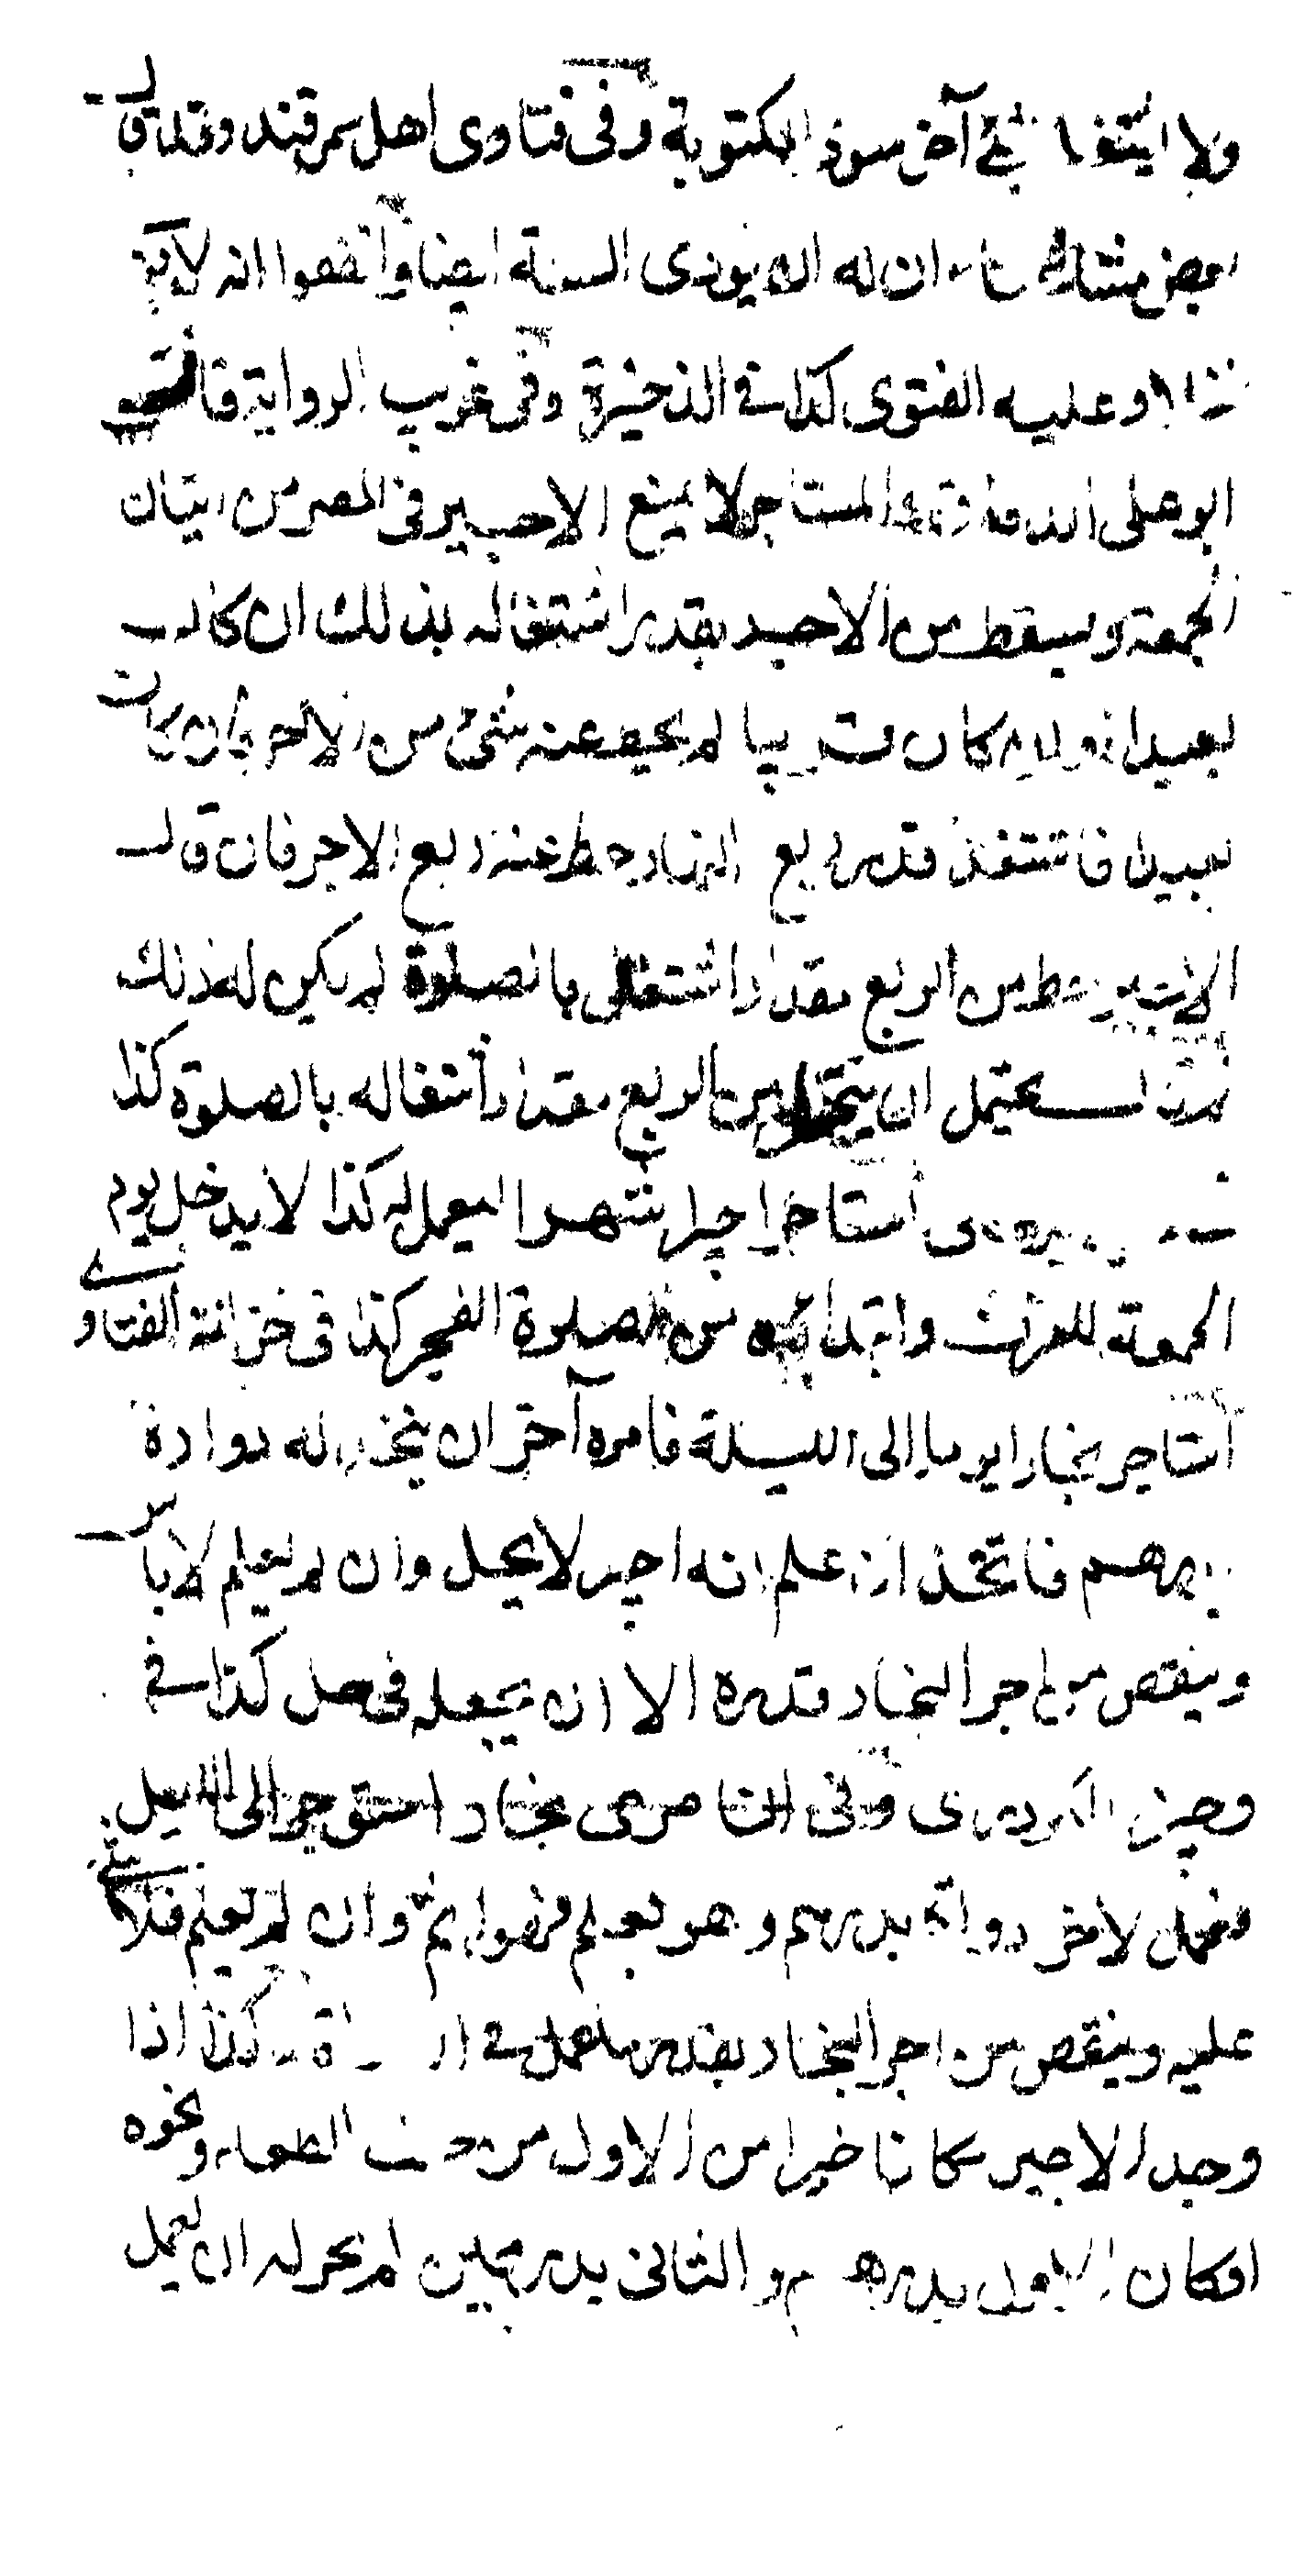 ولا يشتغل بشئ آخر سوى المكتوبة وفى فتاوى اهل سمرقند وقد قال
بعض مشايخنا ان له ان يودى السنة ايضا واتفقوا انه لا يودى
نفلا وعليه الفتوى كذا فى الذخيرة وفى غريب الرواية قال
ابو على الدقاق المستاجر لا يمنع الاجير فى المصر من اتيان
الجمعة ويسقط من الاجير بقدر اشتغاله بذلك ان كان
بعيدا وان كان قريبا لم يحط عنه شئ من الاجر وان كان
بعيدا فاشتغل قدر ربع النهار حط عنه ربع الاجر فان قال
الاجير حط من الربع مقدار اشتغالى بالصلوة لم يكن له ذلك
يحتمل ان يتحمل من الربع مقدار اشتغاله بالصلوة كذا
استاجر اجيرا شهرا ليعمل له كذا لا يدخل يوم
الجمعة للعرف وابتداؤه من صلوة الفجر كذا فى خزانة الفتاوى
استاجر نجارا يوما الى الليلة فامره آخر ان يتخذ له دوارة
بدرهم فاتخذ ان علم انه اجير لا يحل وان لم يعلم لا باس
وينقص من اجر النجار قدره الا ان يجعله فى حل كذا فى
وجيز الكردرى وفى الناصرى نجار استوجر الى الليل
فعمل لآخر دواة بدرهم وهو يعلم فهو آثم وان لم يعلم فلا شئ
عليه وينقص من اجر النجار بقدر ما عمل فى كذا اذا
وجد الاجير مكانا خيرا من الاول من حيث الطعام ونحوه
او كان الاول بدرهم والثانى بدرهمين لم يجز له ان يعمل